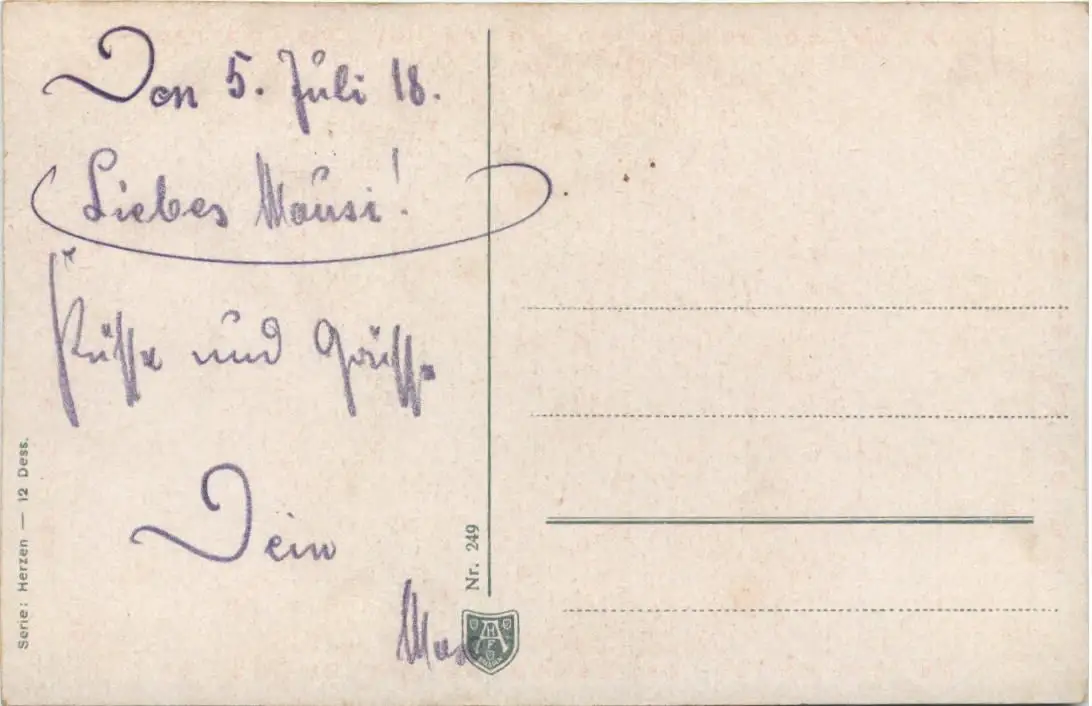 Von 5. Juli 18.
Liebes Mausi!
Küsse und Grüsse
Dein
Nr. 249
Serie: Herzen — 12 Dess.